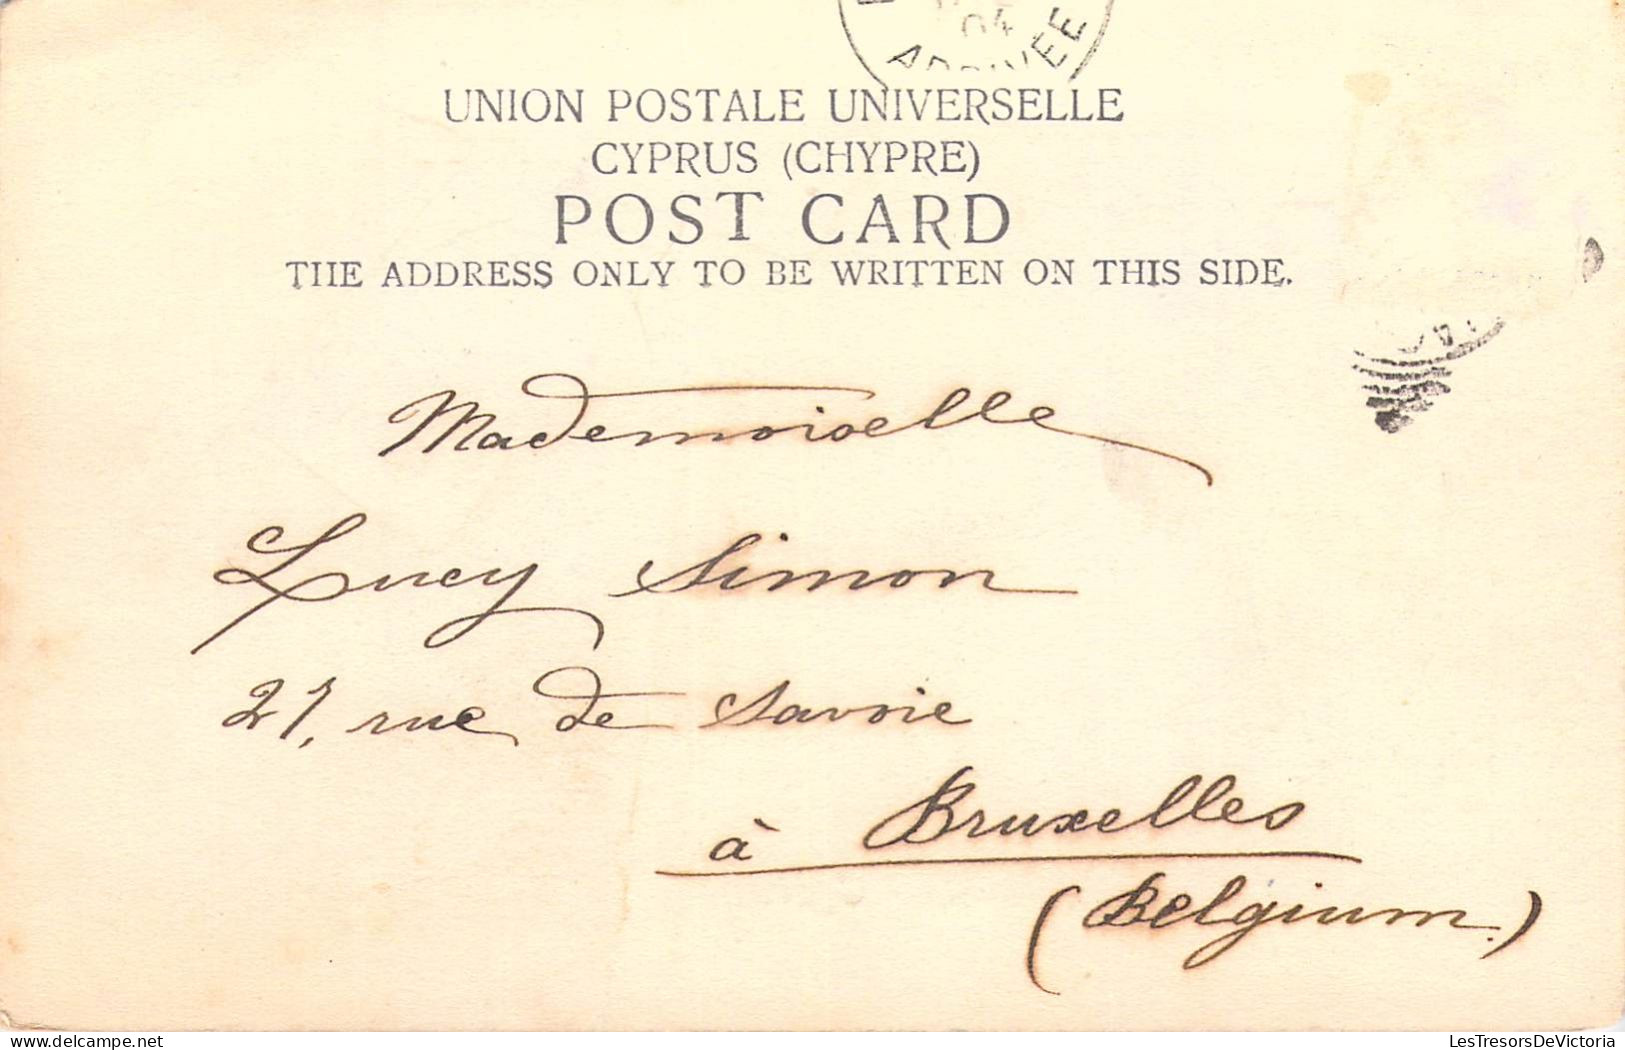 04
ARRIVEE
UNION POSTALE UNIVERSELLE
CYPRUS (CHYPRE)
POST CARD
THE ADDRESS ONLY TO BE WRITTEN ON THIS SIDE.
Mademoiselle
Lucy Simon
21, rue de Savoie
à Bruxelles
(Belgium.)
delcampe.net
LesTresorsDeVictoria